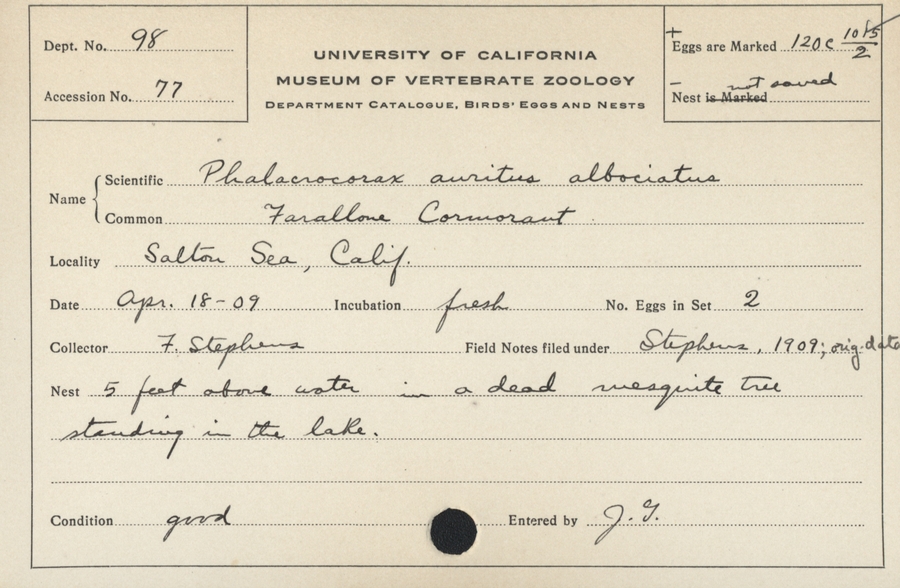 Dept. No. 98
Accession No. 77
UNIVERSITY OF CALIFORNIA
MUSEUM OF VERTEBRATE ZOOLOGY
DEPARTMENT CATALOGUE, BIRDS' EGGS AND NESTS
+ Eggs are Marked 120c 10/5/2
– not saved
Nest is Marked
Name { Scientific Phalacrocorax auritus albociatus
Common Farallone Cormorant
Locality Salton Sea, Calif.
Date Apr. 18-09 Incubation fresh No. Eggs in Set 2
Collector F. Stephens Field Notes filed under Stephens, 1909; orig. data
Nest 5 feet above water in a dead mesquite tree
standing in the lake.
Condition good Entered by J. G.